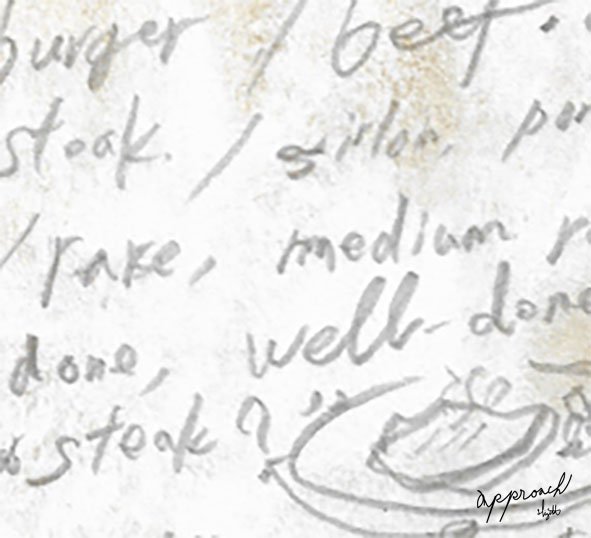 burger / beef.
steak. / sirlon, por
/ rare, medium r
done, well-done
steak?"
approach